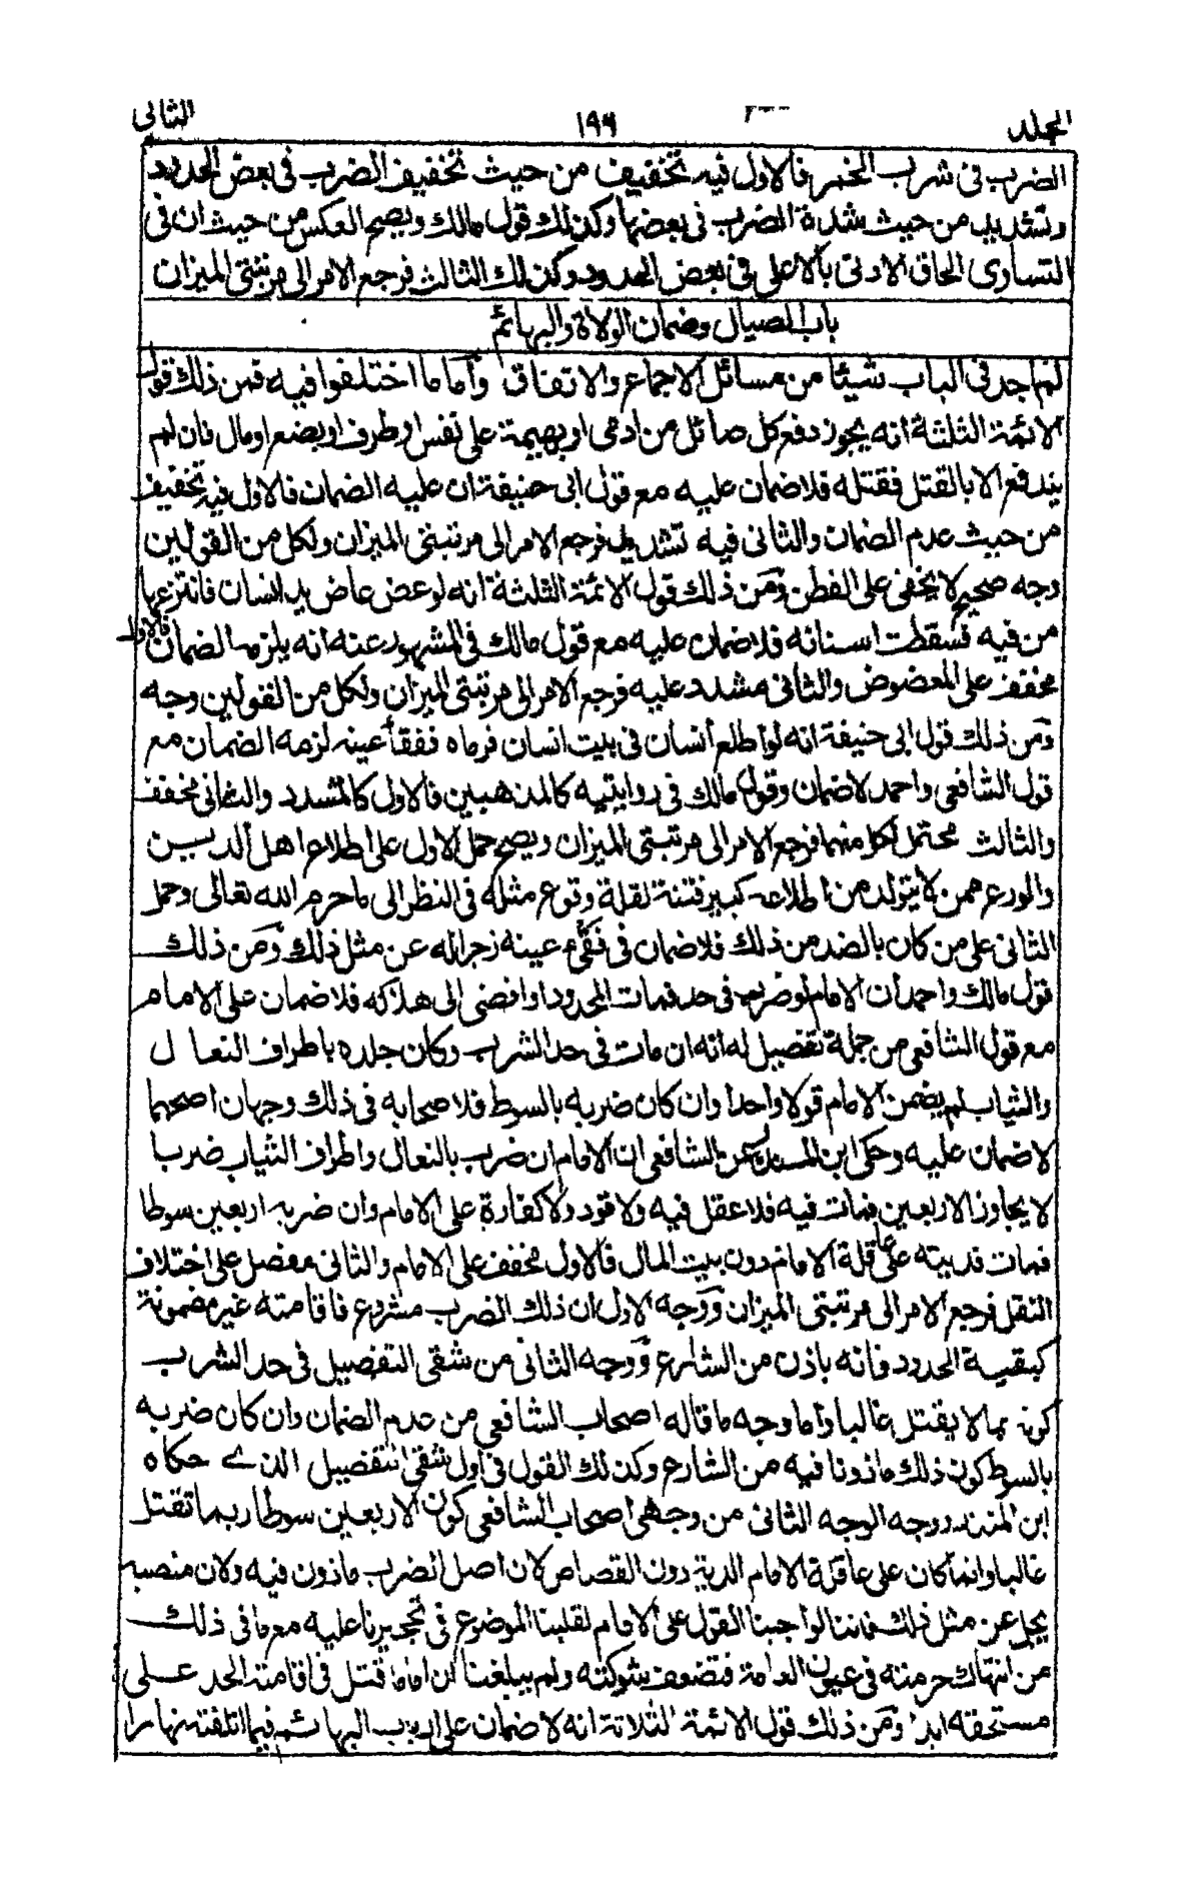 المجلد
١٩٩
الثانى
الضرب فى شرب الخمر فالاول فيه تخفيف من حيث تخفيف الضرب فى بعض الحدود
وتشديد من حيث شدة الضرب فى بعضها وكذلك قول مالك ويصح العكس من حيث ان فى
التساوى الحاق الادنى بالاعلى فى بعض الحدود وكذلك الثالث فرجع الامر الى مرتبتى الميزان
باب الصيال وضمان الولاة والبهائم
لم اجد فى الباب شيئا من مسائل الاجماع والاتفاق واما ما اختلفوا فيه فمن ذلك قول
الائمة الثلثة انه يجوز دفع كل صائل من ادمى او بهيمة على نفس او طرف او بضع او مال فان لم
يندفع الا بالقتل فقتله فلا ضمان عليه مع قول ابى حنيفة ان عليه الضمان فالاول فيه تخفيف
من حيث عدم الضمان والثانى فيه تشديد فرجع الامر الى مرتبتى الميزان ولكل من القولين
وجه صحيح لا يخفى على الفطن ومن ذلك قول الائمة الثلثة انه لو عض عاض يد انسان فانتزعها
من فيه فسقطت اسنانه فلا ضمان عليه مع قول مالك فى المشهور عنه انه يلزمه الضمان فالاول
مخفف على المعضوض والثانى مشدد عليه فرجع الامر الى مرتبتى الميزان ولكل من القولين وجه
ومن ذلك قول ابى حنيفة انه لو اطلع انسان فى بيت انسان فرماه ففقأ عينه لزمه الضمان مع
قول الشافعى واحمد لا ضمان وقول مالك فى روايتيه كالمذهبين فالاول كالمشدد والثانى مخفف
والثالث محتمل لكل منهما فرجع الامر الى مرتبتى الميزان ويصح حمل الاول على اطلاع اهل الدين
والورع ممن لا يتولد من اطلاعه كبير فتنة لقلة وقوع مثله فى النظر الى ما حرم الله تعالى وحمل
الثانى على من كان بالضد من ذلك فلا ضمان فى فقء عينه زجرا له عن مثل ذلك ومن ذلك
قول مالك واحمد ان الامام لو ضرب فى حد فمات المحدود او افضى الى هلاكه فلا ضمان على الامام
مع قول الشافعى من جملة تفصيل له انه ان مات فى حد الشرب وكان جلده باطراف النعال
والثياب لم يضمن الامام قولا واحدا وان كان ضربه بالسوط فلاصحابه فى ذلك وجهان اصحهما
لا ضمان عليه وحكى ابن المنذر عن الشافعى ان الامام ان ضرب بالنعال واطراف الثياب ضربا
لا يجاوز الاربعين فمات فيه فلا عقل فيه ولا قود ولا كفارة على الامام وان ضربه اربعين سوطا
فمات فديته على عاقلة الامام دون بيت المال فالاول مخفف على الامام والثانى مفصل على اختلاف
النقل فرجع الامر الى مرتبتى الميزان ووجه الاول ان ذلك الضرب مشروع فاقامته غير مضمونة
كبقية الحدود فانه باذن من الشارع ووجه الثانى من شقى التفصيل فى حد الشرب
كونه بما لا يقتل غالبا واما وجه ما قاله اصحاب الشافعى من عدم الضمان وان كان ضربه
بالسوط كون ذلك ماذونا فيه من الشارع وكذلك القول فى اول شقى التفصيل الذى حكاه
ابن المنذر ووجه الوجه الثانى من وجهى اصحاب الشافعى كون الاربعين سوطا ربما تقتل
غالبا وانما كان على عاقلة الامام الدية دون القصاص لان اصل الضرب ماذون فيه ولان منصبه
يجل عن مثل ذلك فاننا لو اوجبنا القول على الامام لقلبنا الموضوع فى تجبرنا عليه مع ما فى ذلك
من انتهاك حرمته فى عيون العامة فتضعف شوكته ولم يبلغنا ان اماما قتل فى اقامته الحد على
مستحقه ابدا ومن ذلك قول الائمة الثلاثة انه لا ضمان على ارباب البهائم فيما اتلفته نهارا